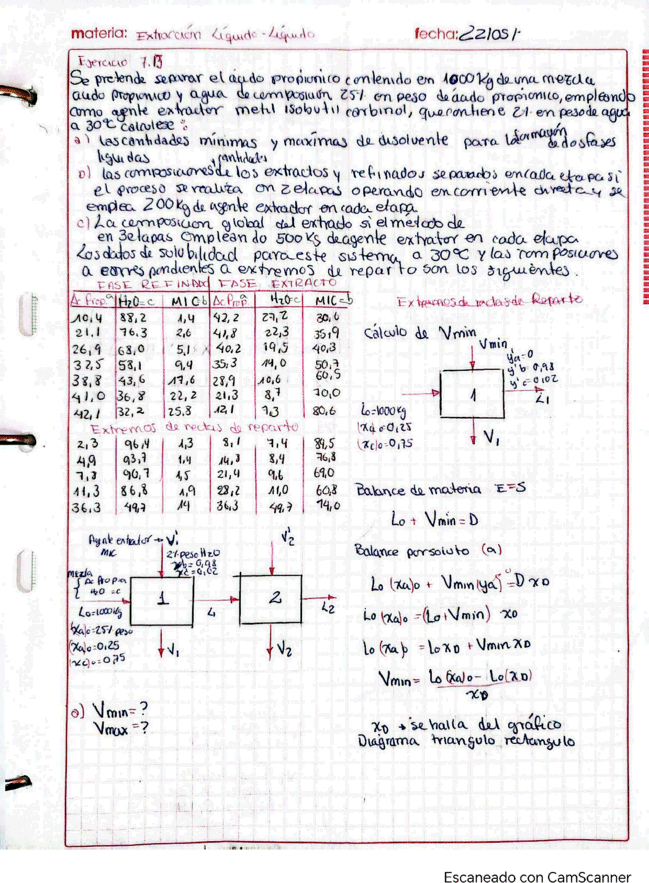 materia: Extracción Líquido-Líquido fecha: 22/05/
Ejercicio 7.13
Se pretende separar el ácido propionico contenido en 1000 Kg de una mezcla
acido propionico y agua de composición 25% en peso de ácido propionico, empleando
como agente extractor metil isobutil carbinol, que contiene 2% en peso de agua
a 30°C calcúlese:
a) las cantidades mínimas y maximas de disolvente para la formación de dos fases
liquidas
b) las composiciones y cantidades de los extractos y refinados separados en cada etapa si
el proceso se realiza en 2 etapas operando en corriente directa y se
emplea 200 Kg de agente extractor en cada etapa
c) La composicion global del extrado si el metodo de
en 3 etapas empleando 500 Kg de agente extrator en cada etapa
Los datos de solubilidad para este sistema a 30°C y las composiciones
a correspondientes a extremos de reparto son los siguientes.
FASE REFINADO FASE EXTRACTO
Ac Prop=a H2O=c MIC=b Ac Prop=a H2O=c MIC=b
10,4 88,2 1,4 42,2 27,2 30,6
21,1 76,3 2,6 41,8 22,3 35,9
26,9 68,0 5,1 40,2 19,5 40,3
32,5 58,1 9,4 35,3 14,0 50,7
38,8 43,6 17,6 28,9 10,6 60,5
41,0 36,8 22,2 21,3 8,7 70,0
42,1 32,2 25,8 12,1 7,3 80,6
Extremos de rectas de reparto
2,3 96,4 1,3 8,1 7,4 84,5
4,9 93,7 1,4 14,8 8,4 76,8
7,8 90,7 1,5 21,4 9,6 69,0
11,3 86,8 1,9 28,2 11,0 60,8
36,3 49,7 14 36,3 49,7 14,0
Agente extrator → V'1
MIC
2% peso H2O
xb=0,98
xc=0,02
V'2
Mezcla
Ac Propia
H2O =c
L0=1000 Kg
(xa)0=25% peso
(xa)0=0,25
(xc)0=0,75
1
L1
2
L2
V1
V2
a) Vmin=?
Vmax=?
Extremos de rectas de Reparto
Cálculo de Vmin
Vmin
ya=0
y'b=0,98
y'c=0,02
1
L1
L0=1000 Kg
(xa)0=0,25
(xc)0=0,75
V1
Balance de materia E=S
L0 + Vmin=D
Balance por soluto (a)
L0 (xa)0 + Vmin(ya)⁰=D xD
L0 (xa)0 = (L0+Vmin) xD
L0 (xa)0 = L0 xD + Vmin xD
Vmin= L0(xa)0 - L0(xD)
xD
xD → se halla del gráfico
Diagrama triangulo rectangulo
Escaneado con CamScanner